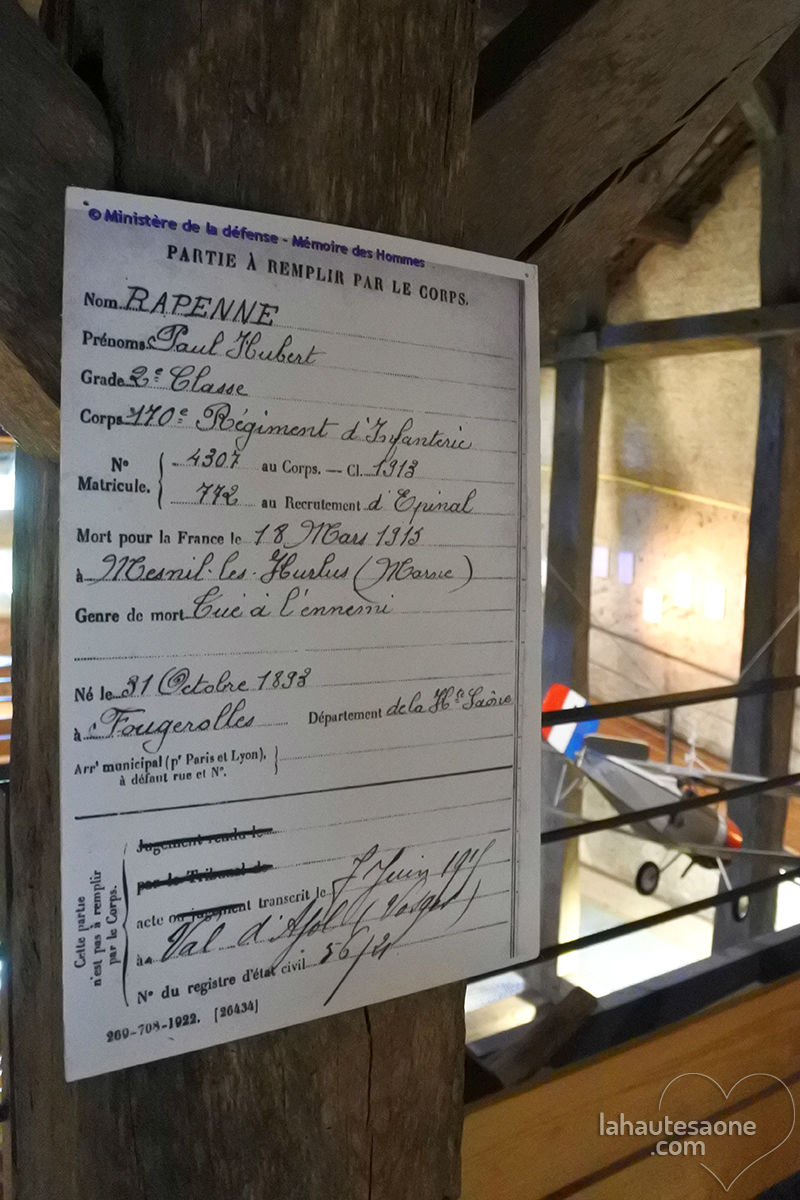 © Ministère de la défense - Mémoire des Hommes
PARTIE À REMPLIR PAR LE CORPS.
Nom RAPENNE
Prénoms Paul Hubert
Grade 2e Classe
Corps 170e Régiment d'Infanterie
No Matricule. { 4307 au Corps. — Cl. 1913
772 au Recrutement d'Epinal
Mort pour la France le 18 Mars 1915
à Mesnil-les-Hurlus (Marne)
Genre de mort Tué à l'ennemi
Né le 31 Octobre 1893
à Fougerolles Département de la Hte Saône
Arrt municipal (pr Paris et Lyon), }
à défaut rue et No.
Cette partie n'est pas à remplir par le Corps.
Jugement rendu le
par le Tribunal de
acte ou jugement transcrit le 7 Juin 1915
à Val d'Ajol (Vosges)
No du registre d'état civil 56/21
269-708-1922. [26434]
lahautesaone
.com